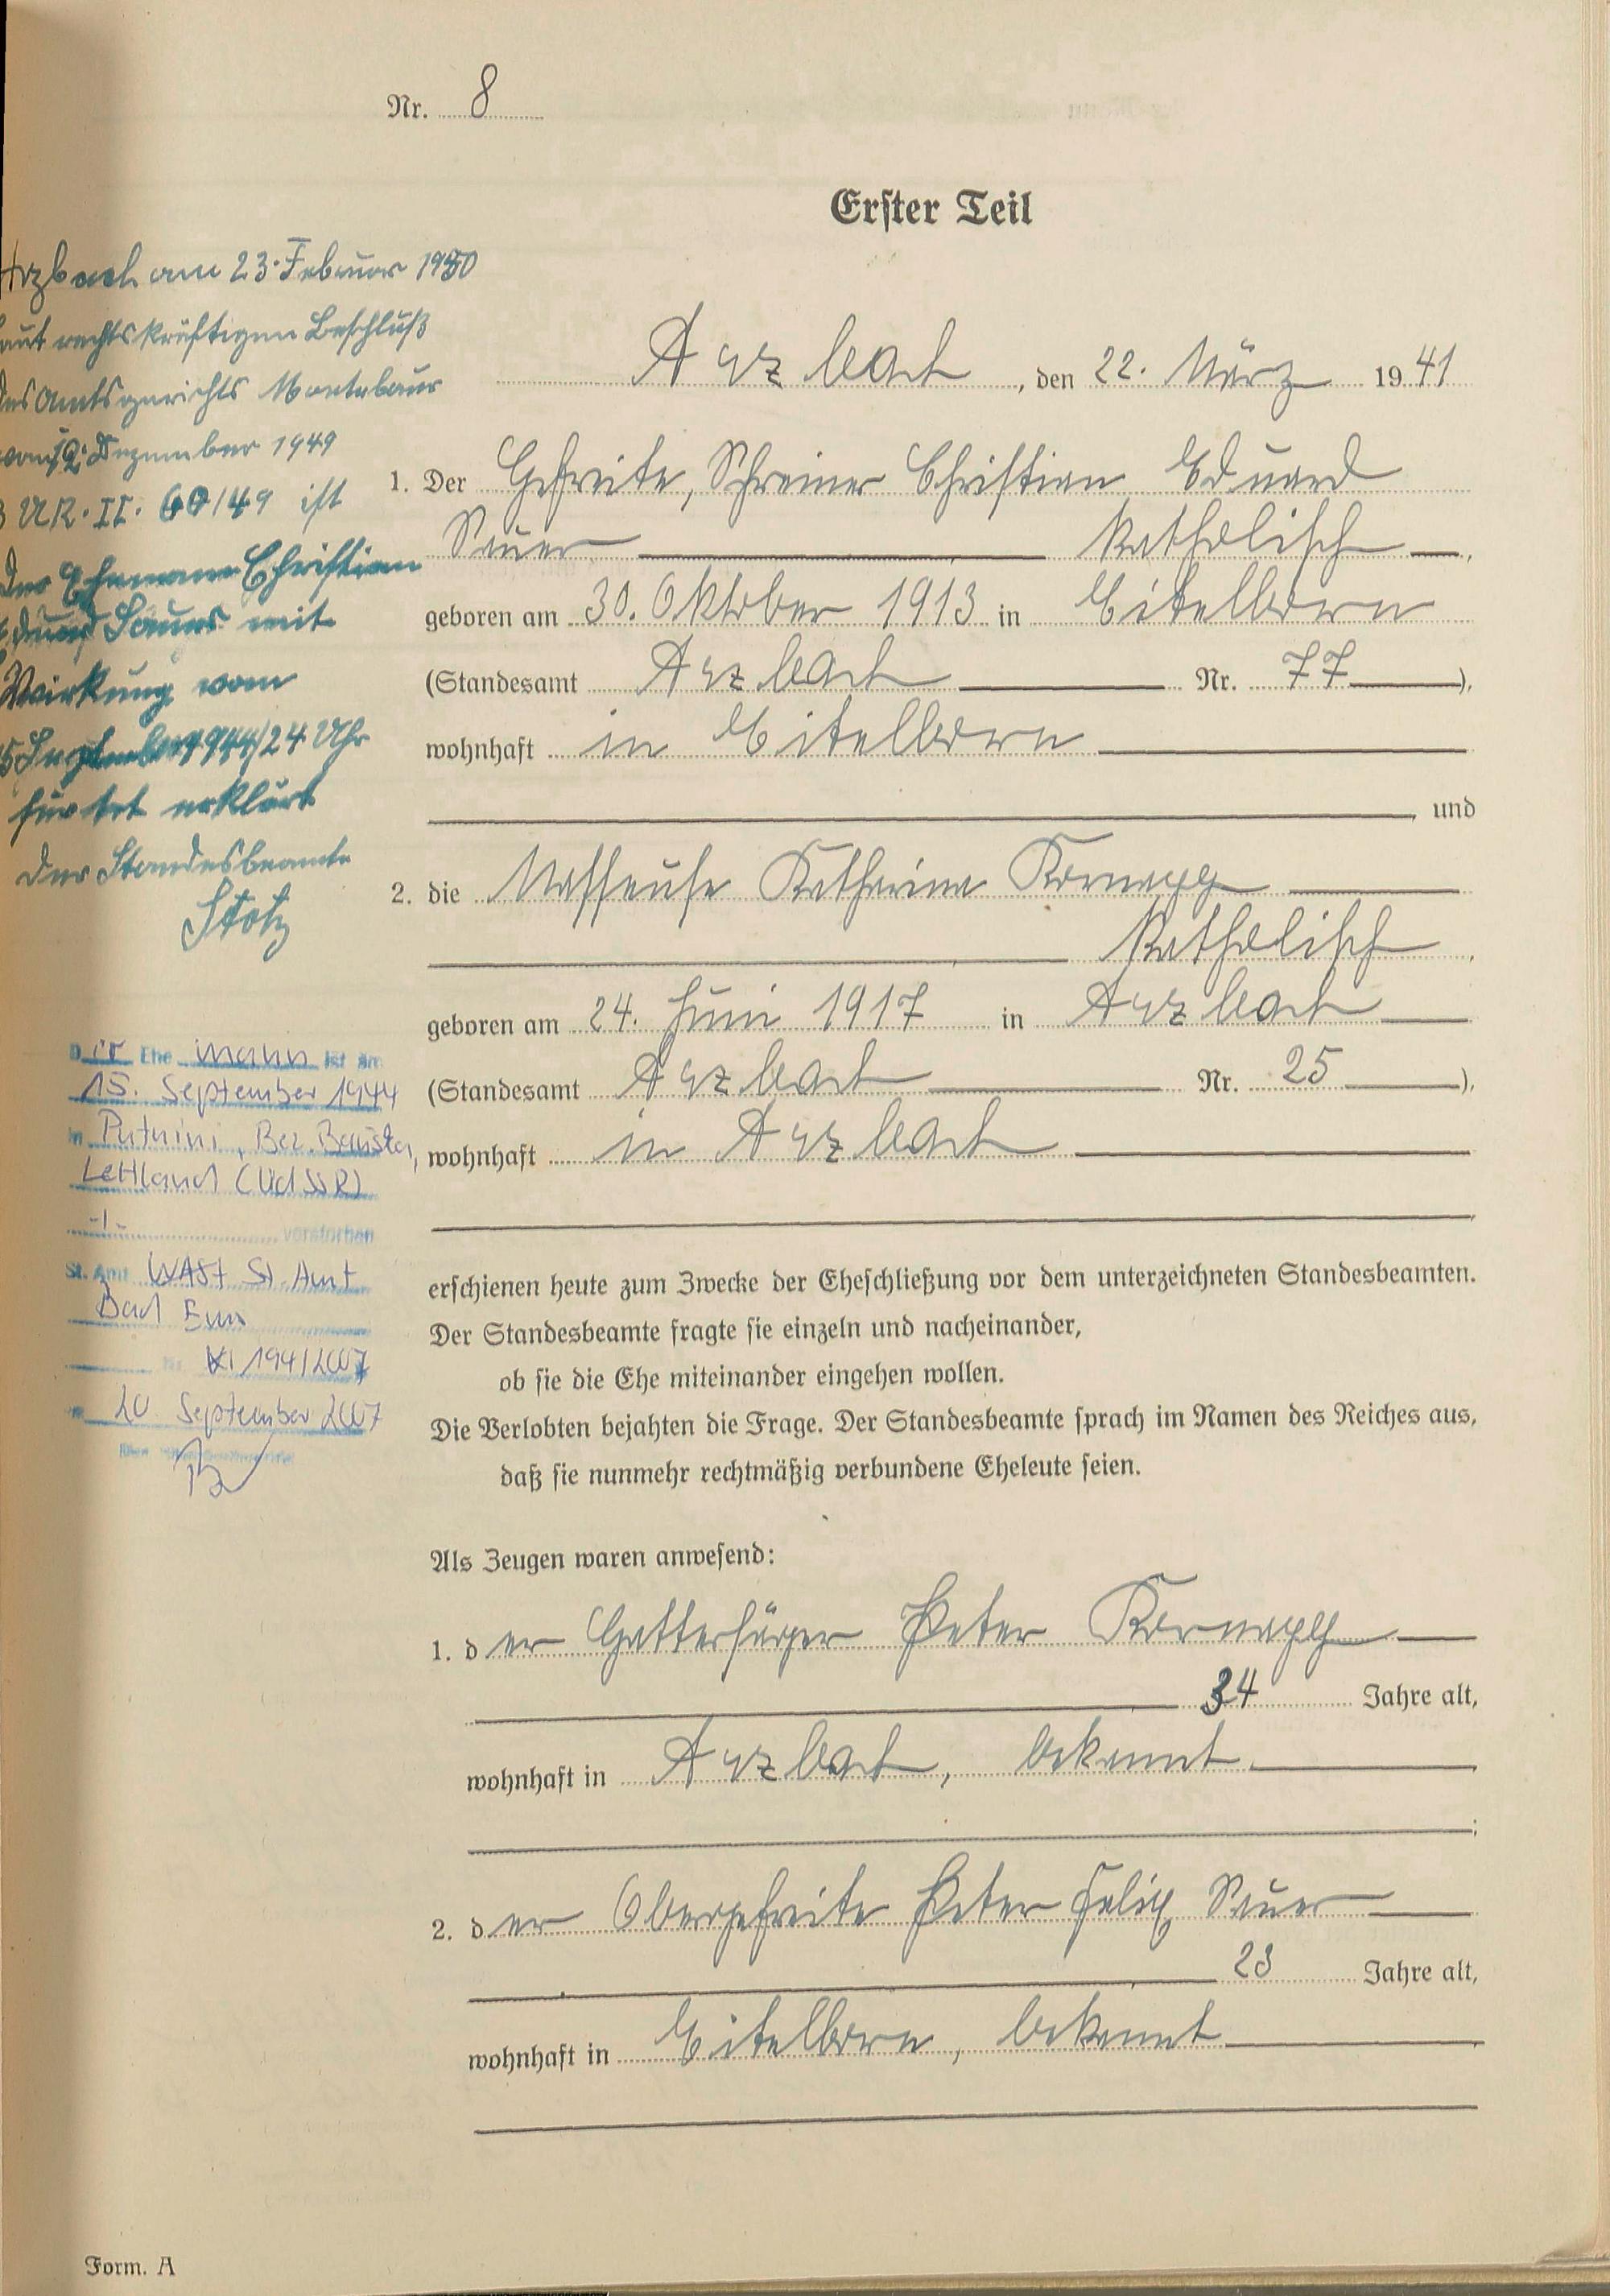 Nr. 8
Erster Teil
Arzbach, den 22. März 1941
1. Der Gefreite, Schreiner Christian Eduard
Sauer katholisch,
geboren am 30. Oktober 1913 in Eitelborn
(Standesamt Arzbach Nr. 77),
wohnhaft in Eitelborn
und
2. die Masseuse Katharina Kornapp
katholisch,
geboren am 24. Juni 1917 in Arzbach
(Standesamt Arzbach Nr. 25),
wohnhaft in Arzbach
erschienen heute zum Zwecke der Eheschließung vor dem unterzeichneten Standesbeamten.
Der Standesbeamte fragte sie einzeln und nacheinander,
ob sie die Ehe miteinander eingehen wollen.
Die Verlobten bejahten die Frage. Der Standesbeamte sprach im Namen des Reiches aus,
daß sie nunmehr rechtmäßig verbundene Eheleute seien.
Als Zeugen waren anwesend:
1. der Peter Kornapp
34 Jahre alt,
wohnhaft in Arzbach, bekannt
;
2. der Obergefreite Peter Felix Sauer
23 Jahre alt,
wohnhaft in Eitelborn, bekannt
Form. A
Arzbach am 23. Februar 1950
Laut rechtskräftigen Beschluß
des Amtsgerichts Montabaur
vom 12. Dezember 1949
3 UR. II. 60/49 ist
der Ehemann Christian
Eduard Sauer mit
Wirkung vom
15 September 1944/24 Uhr
für tot erklärt
Der Standesbeamte
Stotz
Der Ehemann ist am
15. September 1944
in Putnini, Bez. Bauska,
Lettland (UdSSR)
-/- verstorben
St. Amt WASt St. Amt
Bad Ems
Nr. 194/2007
20. September 2007